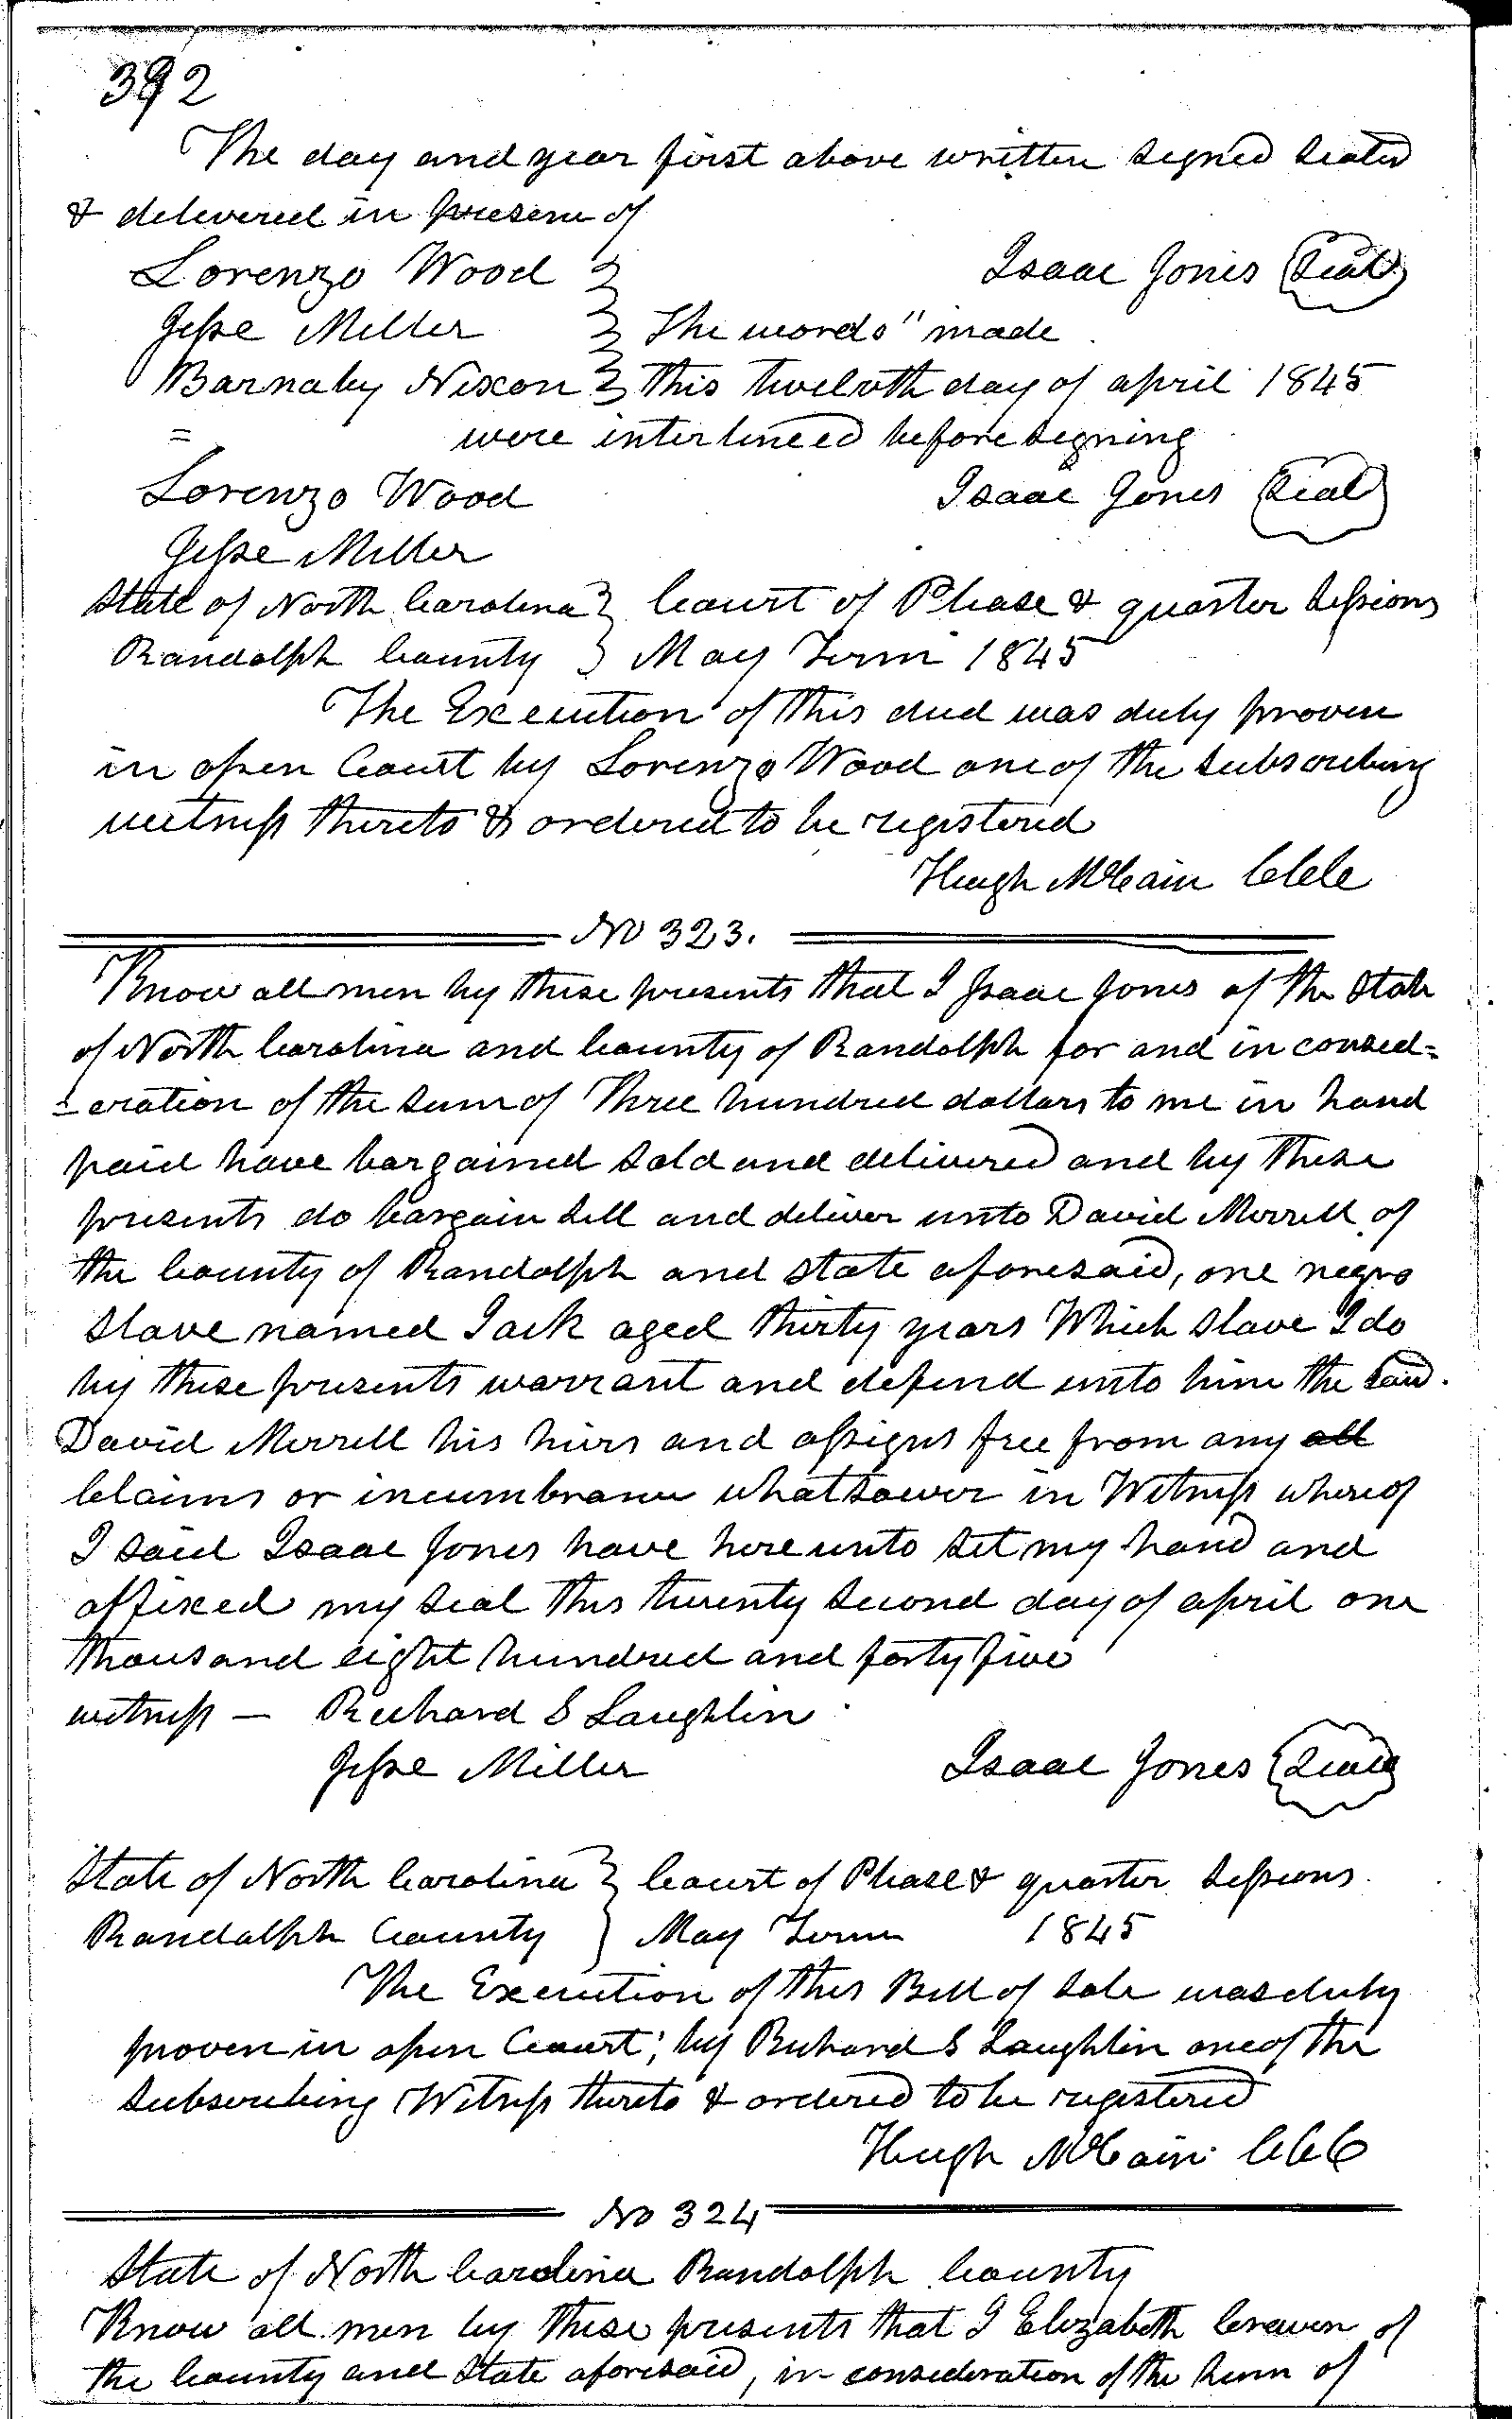 392
The day and year first above written signed sealed
& delivered in presence of
Lorenzo Wood } Isaac Jones (Seal)
Jesse Miller } The words " made
Barnaby Nixon } this twelvth day of april 1845
= were interlineed before signing
Lorenzo Wood Isaac Jones (Seal)
Jesse Miller
State of North Carolina } Court of Please & quarter Sessions
Randolph County } May Term 1845
The Execution of this deed was duly proven
in open Court by Lorenzo Wood one of the subscribing
witness thereto & ordered to be registered
Hugh McCain CCC
No 323.
Know all men by these presents that I Isaac Jones of the State
of North Carolina and County of Randolph for and in consid=
=eration of the sum of Three hundred dollars to me in hand
paid have bargained sold and delivered and by these
presents do bargain sell and deliver unto David Merrell of
the County of Randolph and state aforesaid, one negro
slave named Jack aged thirty years Which slave I do
by these presents warrant and defend unto him the said
David Merrell his heirs and assigns free from any all
Claims or incumbrance whatsoever in Witness whereof
I said Isaac Jones have here unto set my hand and
affixed my seal this twenty second day of april one
thousand eight hundred and forty five
witness — Richard S Laughlin
Jesse Miller Isaac Jones (Seal)
State of North Carolina } Court of Please & quarter Sessions
Randolph County } May Term 1845
The Execution of this Bill of Sale was duly
proven in open Court; by Richard S Laughlin one of the
subscribing Witness thereto & ordered to be registered
Hugh McCain CCC
No 324
State of North Carolina Randolph County
Know all men by these presents that I Elizabeth Craven of
the County and State aforesaid, in consideration of the sum of